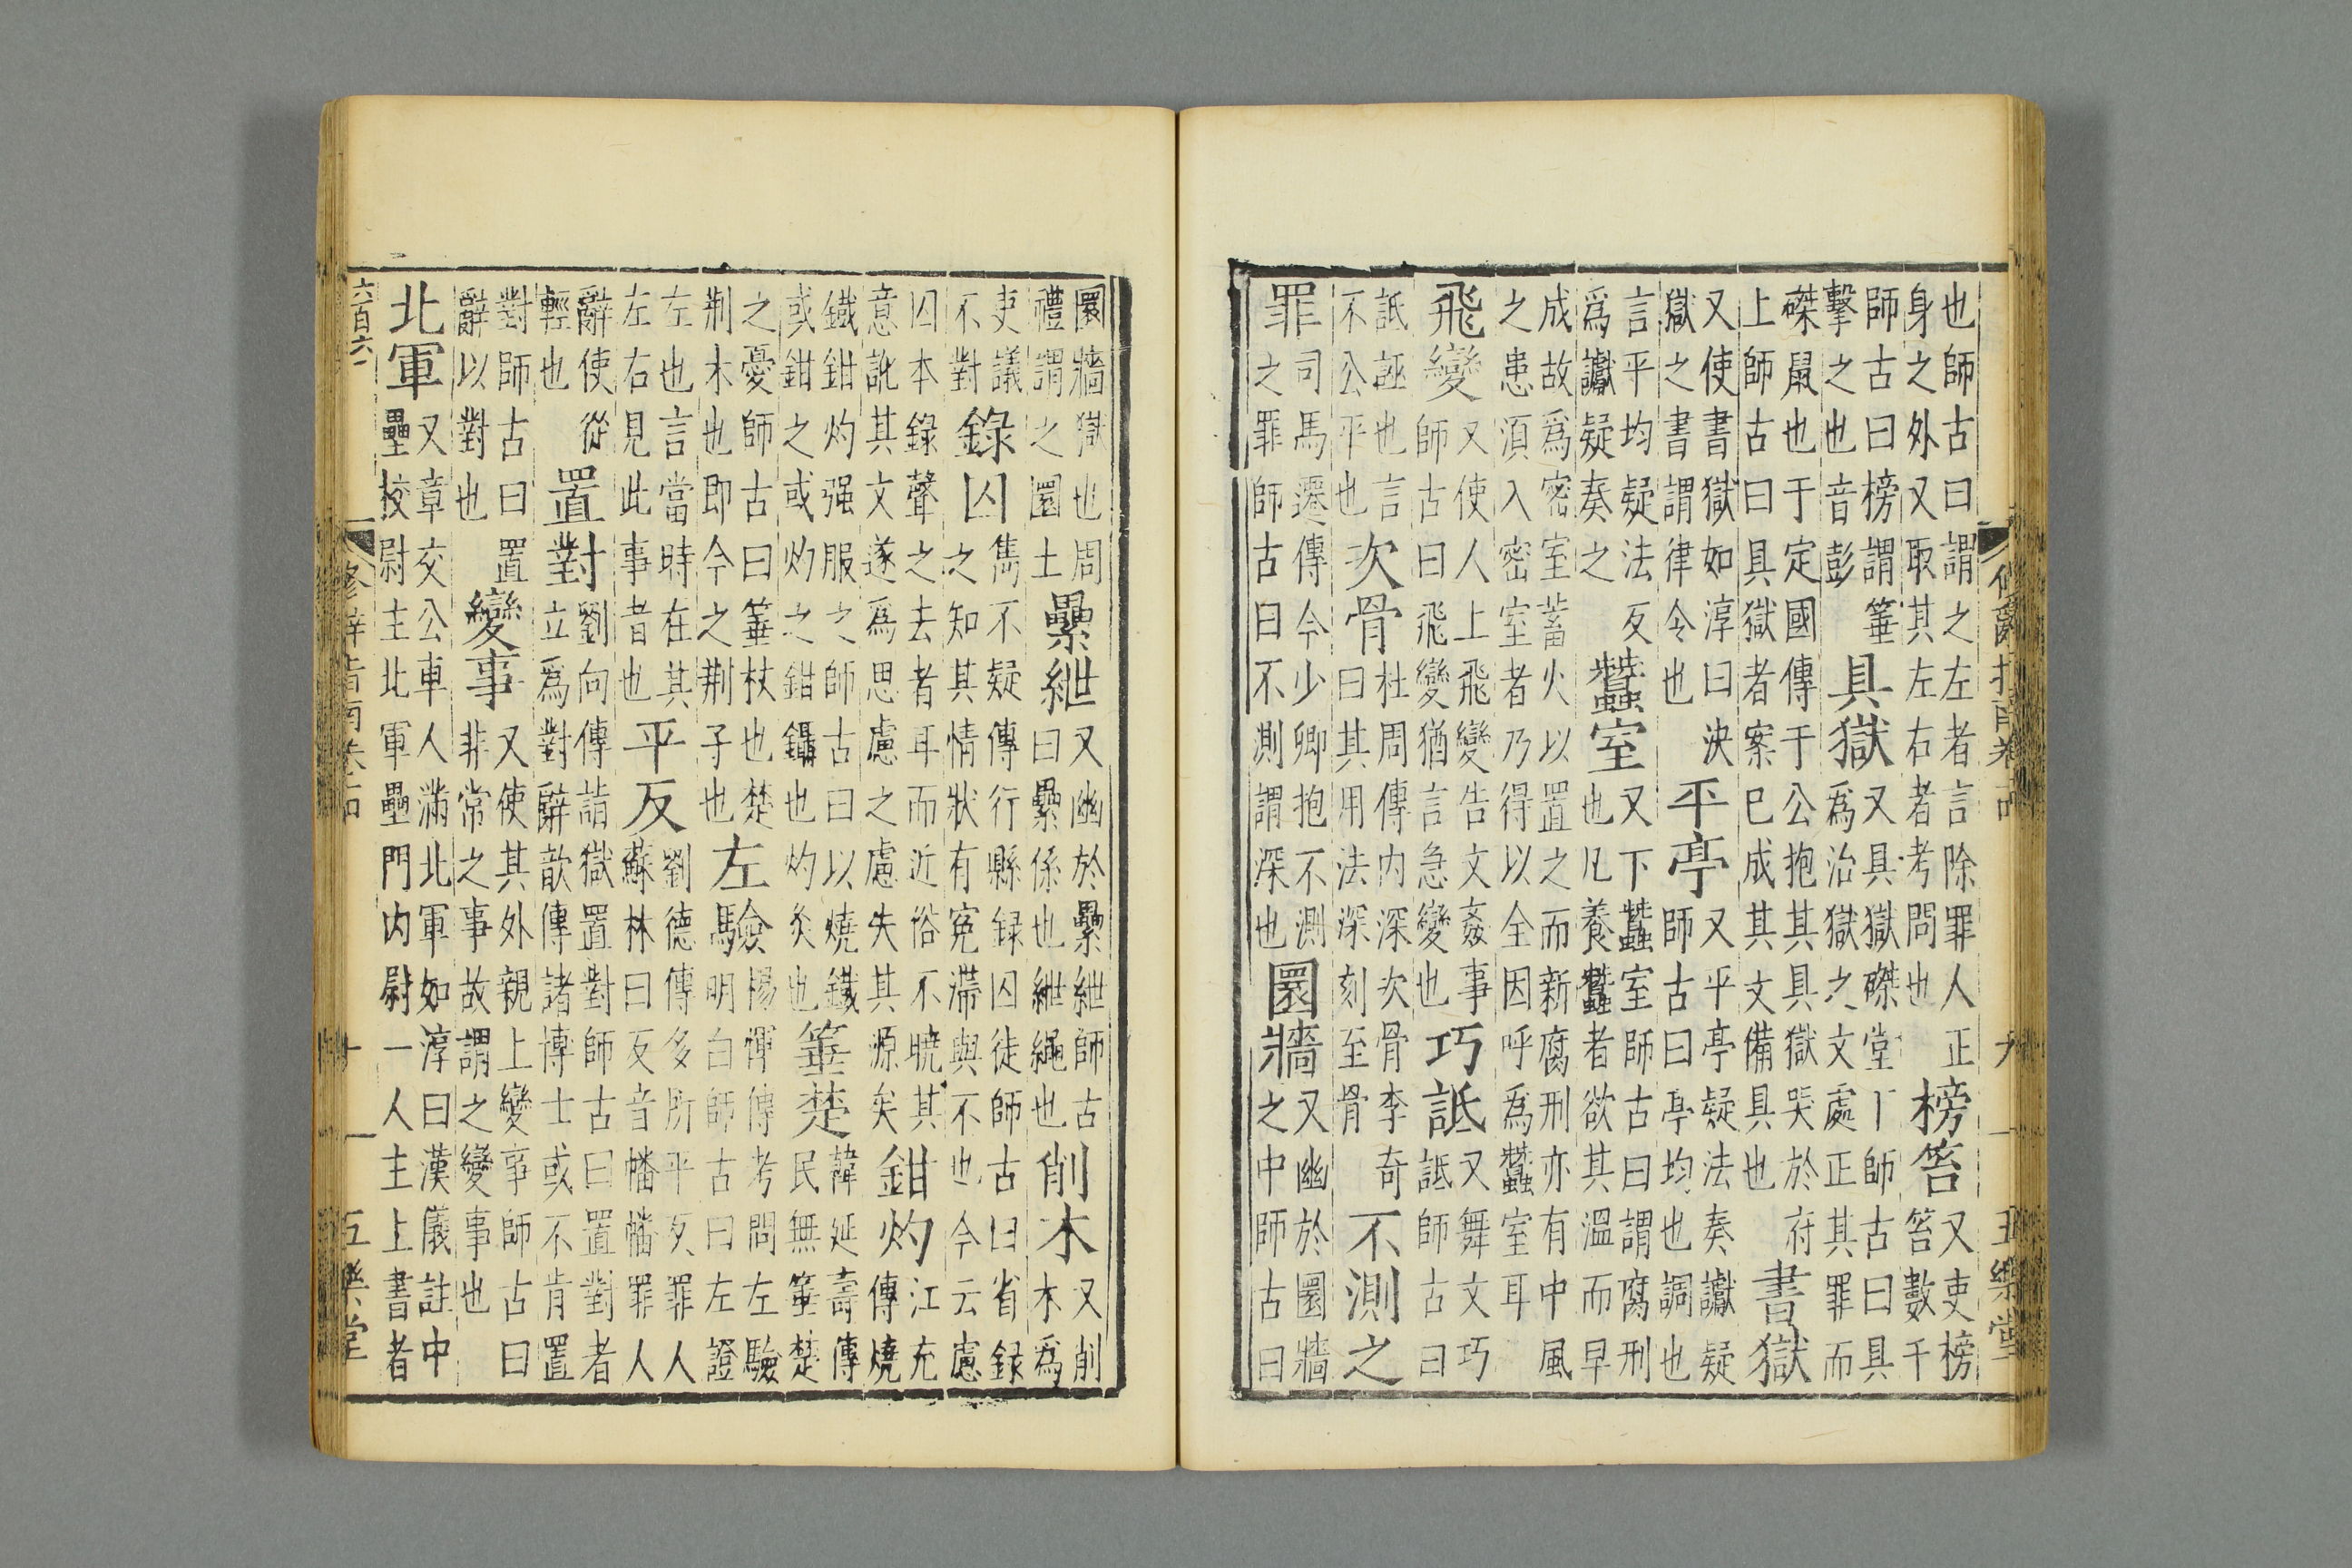 修辭指南卷 九 五樂堂
也師古曰謂之左者言除罪人正
身之外又取其左右者考問也
榜笞
又吏榜
笞數千
師古曰榜謂箠
擊之也音彭
具獄
又具獄磔堂丅師古曰具
爲治獄之文處正其罪而
磔鼠也于定國傳于公抱其具獄哭於府
上師古曰具獄者案已成其文備具也
書獄
又使書獄如淳曰決
獄之書謂律令也
平亭
又平亭疑法奏讞疑
師古曰亭均也調也
言平均疑法反
爲讞疑奏之
蠶室
又下蠶室師古曰謂腐刑
也凡養蠶者欲其溫而早
成故爲密室蓄火以置之而新腐刑亦有中風
之患須入密室者乃得以全因呼爲蠶室耳
飛變
又使人上飛變告文姦事
師古曰飛變猶言急變也
巧詆
又舞文巧
詆師古曰
詆誣也言
不公平也
次骨
杜周傳内深次骨李奇
曰其用法深刻至骨
不測之
罪
司馬遷傳今少卿抱不測
之罪師古曰不測謂深也
圜牆
又幽於圜牆
之中師古曰
圜牆獄也周
禮謂之圜土
纍紲
又幽於纍紲師古
曰纍係也紲繩也
削木
又削
木爲
吏議
不對
錄囚
雋不疑傳行縣録囚徒師古曰省録
之知其情狀有寃滯與不也今云慮
囚本錄聲之去者耳而近俗不曉其
意訛其文遂爲思慮之慮失其源矣
鉗灼
江充
傳燒
鐵鉗灼强服之師古曰以燒鐵
或鉗之或灼之鉗鑷也灼炙也
箠楚
韓延壽傳
民無箠楚
之憂師古曰箠杖也楚
荆木也即今之荆子也
左驗
楊惲傳考問左驗
明白師古曰左證
左也言當時在其
左右見此事者也
平反
劉德傳多所平反罪人
蘇林曰反音幡幡罪人
辭使從
輕也
置對
劉向傳詣獄置對師古曰置對者
立爲對辭歆傳諸博士或不肯置
對師古曰置
辭以對也
變事
又使其外親上變事師古曰
非常之事故謂之變事也
北軍
又章交公車人滿北軍如淳曰漢儀註中
壘校尉主北軍壘門内尉一人主上書者
六百六
修辭指南卷十四 十 五樂堂